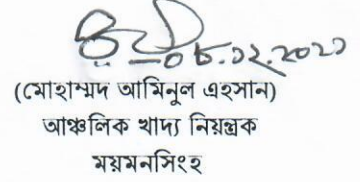 ০৮.১২.২০২১
(মোহাম্মদ আমিনুল এহসান)
আঞ্চলিক খাদ্য নিয়ন্ত্রক
ময়মনসিংহ